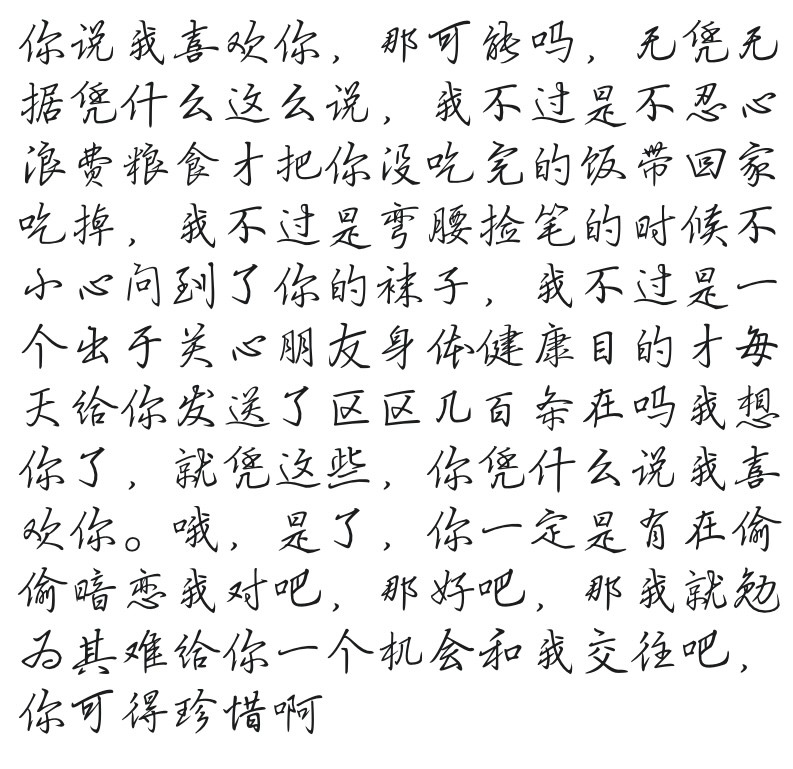 你说我喜欢你，那可能吗，无凭无
据凭什么这么说，我不过是不忍心
浪费粮食才把你没吃完的饭带回家
吃掉，我不过是弯腰捡笔的时候不
小心问到了你的袜子，我不过是一
个出于关心朋友身体健康目的才每
天给你发送了区区几百条在吗我想
你了，就凭这些，你凭什么说我喜
欢你。哦，是了，你一定是有在偷
偷暗恋我对吧，那好吧，那我就勉
为其难给你一个机会和我交往吧，
你可得珍惜啊